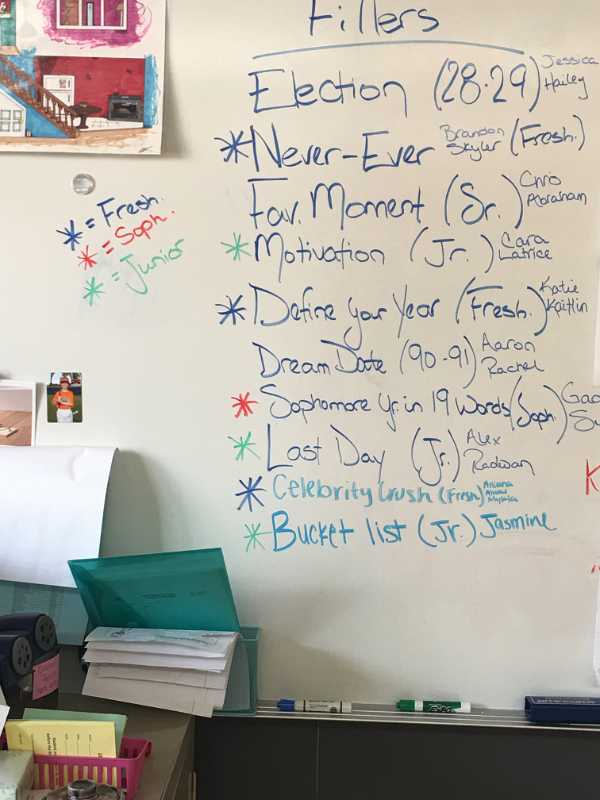 Fillers
Election (28-29) Jessica
Hailey
* Never-Ever Brandon (Fresh.)
Skyler
Fav. Moment (Sr.) Chris
Abraham
* Motivation (Jr.) Cara
Latrice
* Define your Year (Fresh.) Katie
Kaitlin
Dream Date (90-91) Aaron
Rachel
* Sophomore Yr. in 19 words (Soph.)
* Last Day (Jr.) Alex
Radwan
* Celebrity Crush (Fresh)
* Bucket list (Jr.) Jasmine
* = Fresh.
* = Soph.
* = Junior